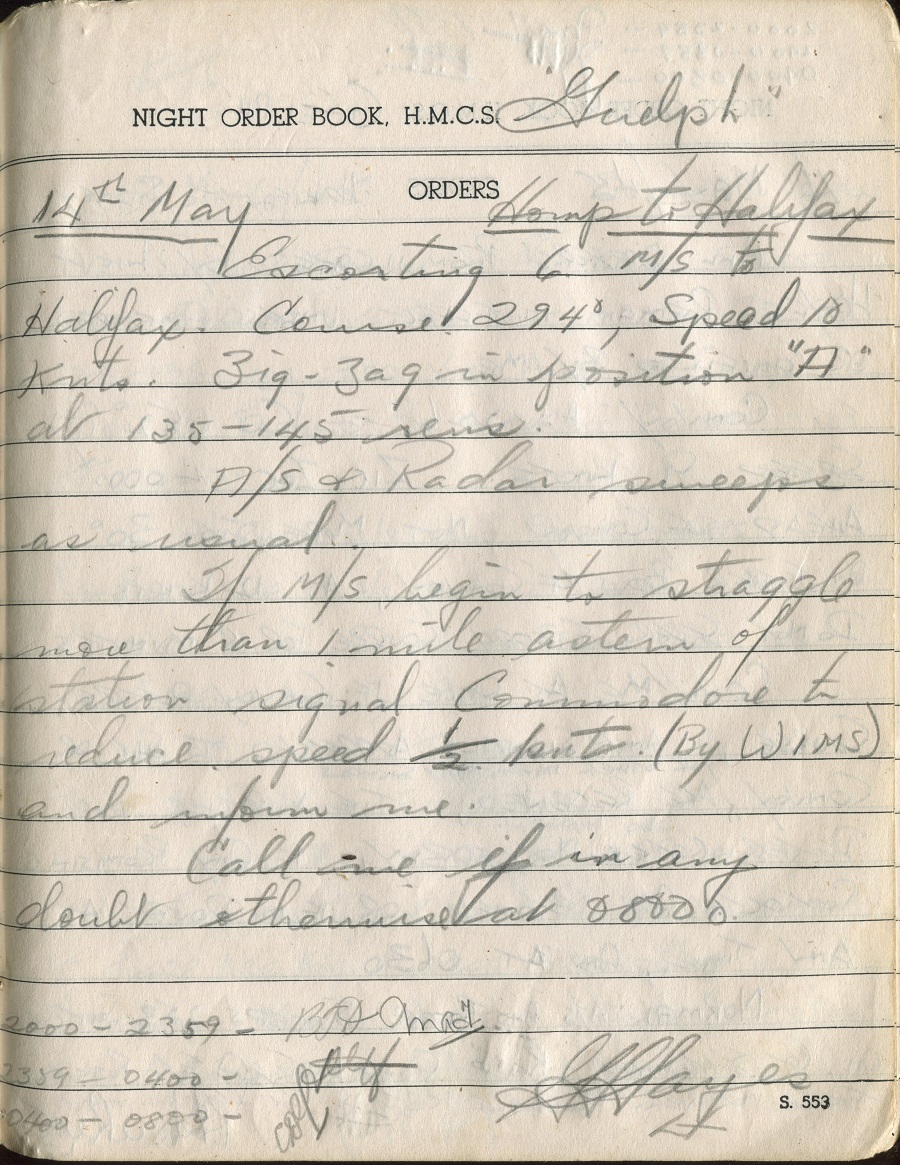 NIGHT ORDER BOOK, H.M.C.S. "Guelph"
ORDERS
14th May Homp to Halifax
Escorting 6 M/S to
Halifax. Course 294°, Speed 10
Knts. Zig-Zag in position "A"
at 135-145 revs.
A/S & Radar sweeps
as usual.
If M/S begin to straggle
more than 1 mile astern of
station signal Commodore to
reduce speed 1/2 knt. (By W/T MS)
and inform me.
Call me if in any
doubt otherwise at 0800.
2000 - 2359 -
2359 - 0400 -
0400 - 0800 -
Hayes
S. 553